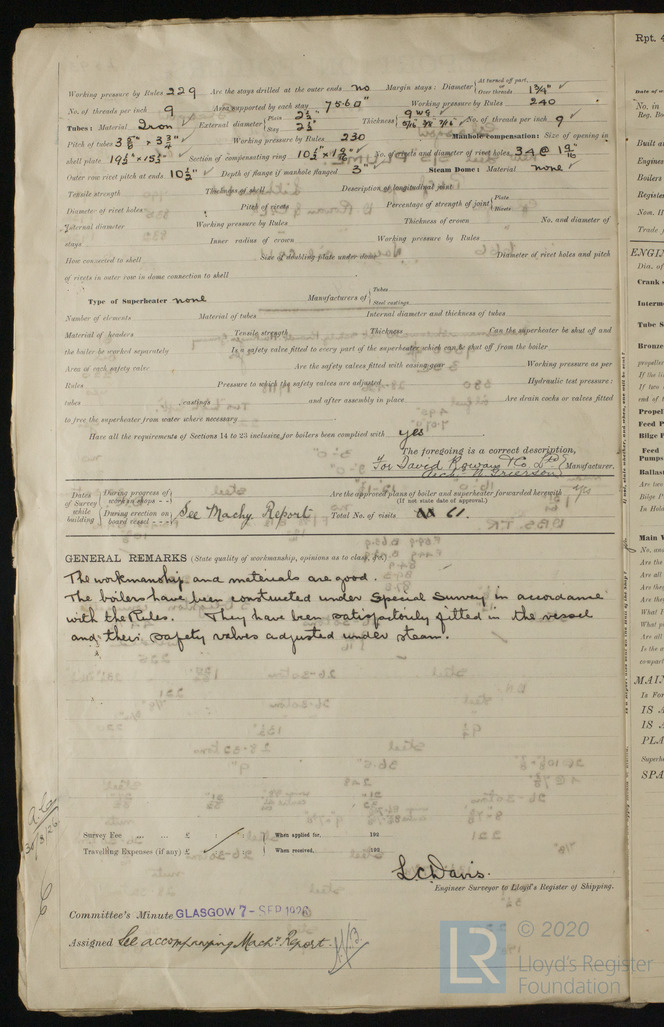 Working pressure by Rules 229 Are the stays drilled at the outer ends no Margin stays: Diameter { At turned off part, or Over threads 1¾"
No. of threads per inch 9 Area supported by each stay 75.6 □" Working pressure by Rules 240
Tubes: Material Iron External diameter { Plain 2½" Stay 2½" Thickness { 9 WG 5/16 3/8 7/16 No. of threads per inch 9
Pitch of tubes 3 5/8" × 3 3/4" Working pressure by Rules 230 Manhole compensation: Size of opening in
shell plate 19½" × 15½" Section of compensating ring No. of rivets and diameter of rivet holes 34 @
Outer row rivet pitch at ends 10½" Depth of flange if manhole flanged 3" Steam Dome: Material none
Tensile strength Thickness of shell Description of longitudinal joint
Diameter of rivet holes Pitch of rivets Percentage of strength of joint { Plate Rivets
Internal diameter Working pressure by Rules Thickness of crown No. and diameter of
stays Inner radius of crown Working pressure by Rules
How connected to shell Size of doubling plate under dome Diameter of rivet holes and pitch
of rivets in outer row in dome connection to shell
Type of Superheater none Manufacturers of { Tubes Steel castings
Number of elements Material of tubes Internal diameter and thickness of tubes
Material of headers Tensile strength Thickness Can the superheater be shut off and
the boiler be worked separately Is a safety valve fitted to every part of the superheater which can be shut off from the boiler
Area of each safety valve Are the safety valves fitted with easing gear Working pressure as per
Rules Pressure to which the safety valves are adjusted Hydraulic test pressure:
tubes castings and after assembly in place Are drain cocks or valves fitted
to free the superheater from water where necessary
Have all the requirements of Sections 14 to 23 inclusive for boilers been complied with yes
The foregoing is a correct description,
For David Rowan & Co. Ltd. Manufacturer.
Dates of Survey while building { During progress of work in shops - - During erection on board vessel - - - } See Machy Report Are the approved plans of boiler and superheater forwarded herewith Yes
(If not state date of approval.)
Total No. of visits 61.
GENERAL REMARKS (State quality of workmanship, opinions as to class, &c.)
The workmanship and materials are good.
The boilers have been constructed under Special Survey in accordance
with the Rules. They have been satisfactorily fitted in the vessel
and their safety valves adjusted under steam.
Survey Fee ... ... £ : : When applied for, 192
Travelling Expenses (if any) £ : : When received, 192
L.C. Davis.
Engineer Surveyor to Lloyd's Register of Shipping.
Committee's Minute GLASGOW 7 - SEP 1926
Assigned See accompanying Machy Report.
Rpt. 4
No. in
Reg. Bo
Built at
Engines
Boilers
Register
Nom. H
Trade
ENGIN
Dia. of
Crank
Interm
Tube S
Bronze
propeller
If the li
If two
end of t
Propel
Feed P
Bilge P
Feed
Pumps
Ballas
Bilge P
In Hold
Main V
No. an
Are the
Are all
Are they
Are the
What
What p
Are all
Is the a
MAIN
Is For
IS A
IS A
PLA
Superhe
SPA
LR © 2020
Lloyd's Register
Foundation